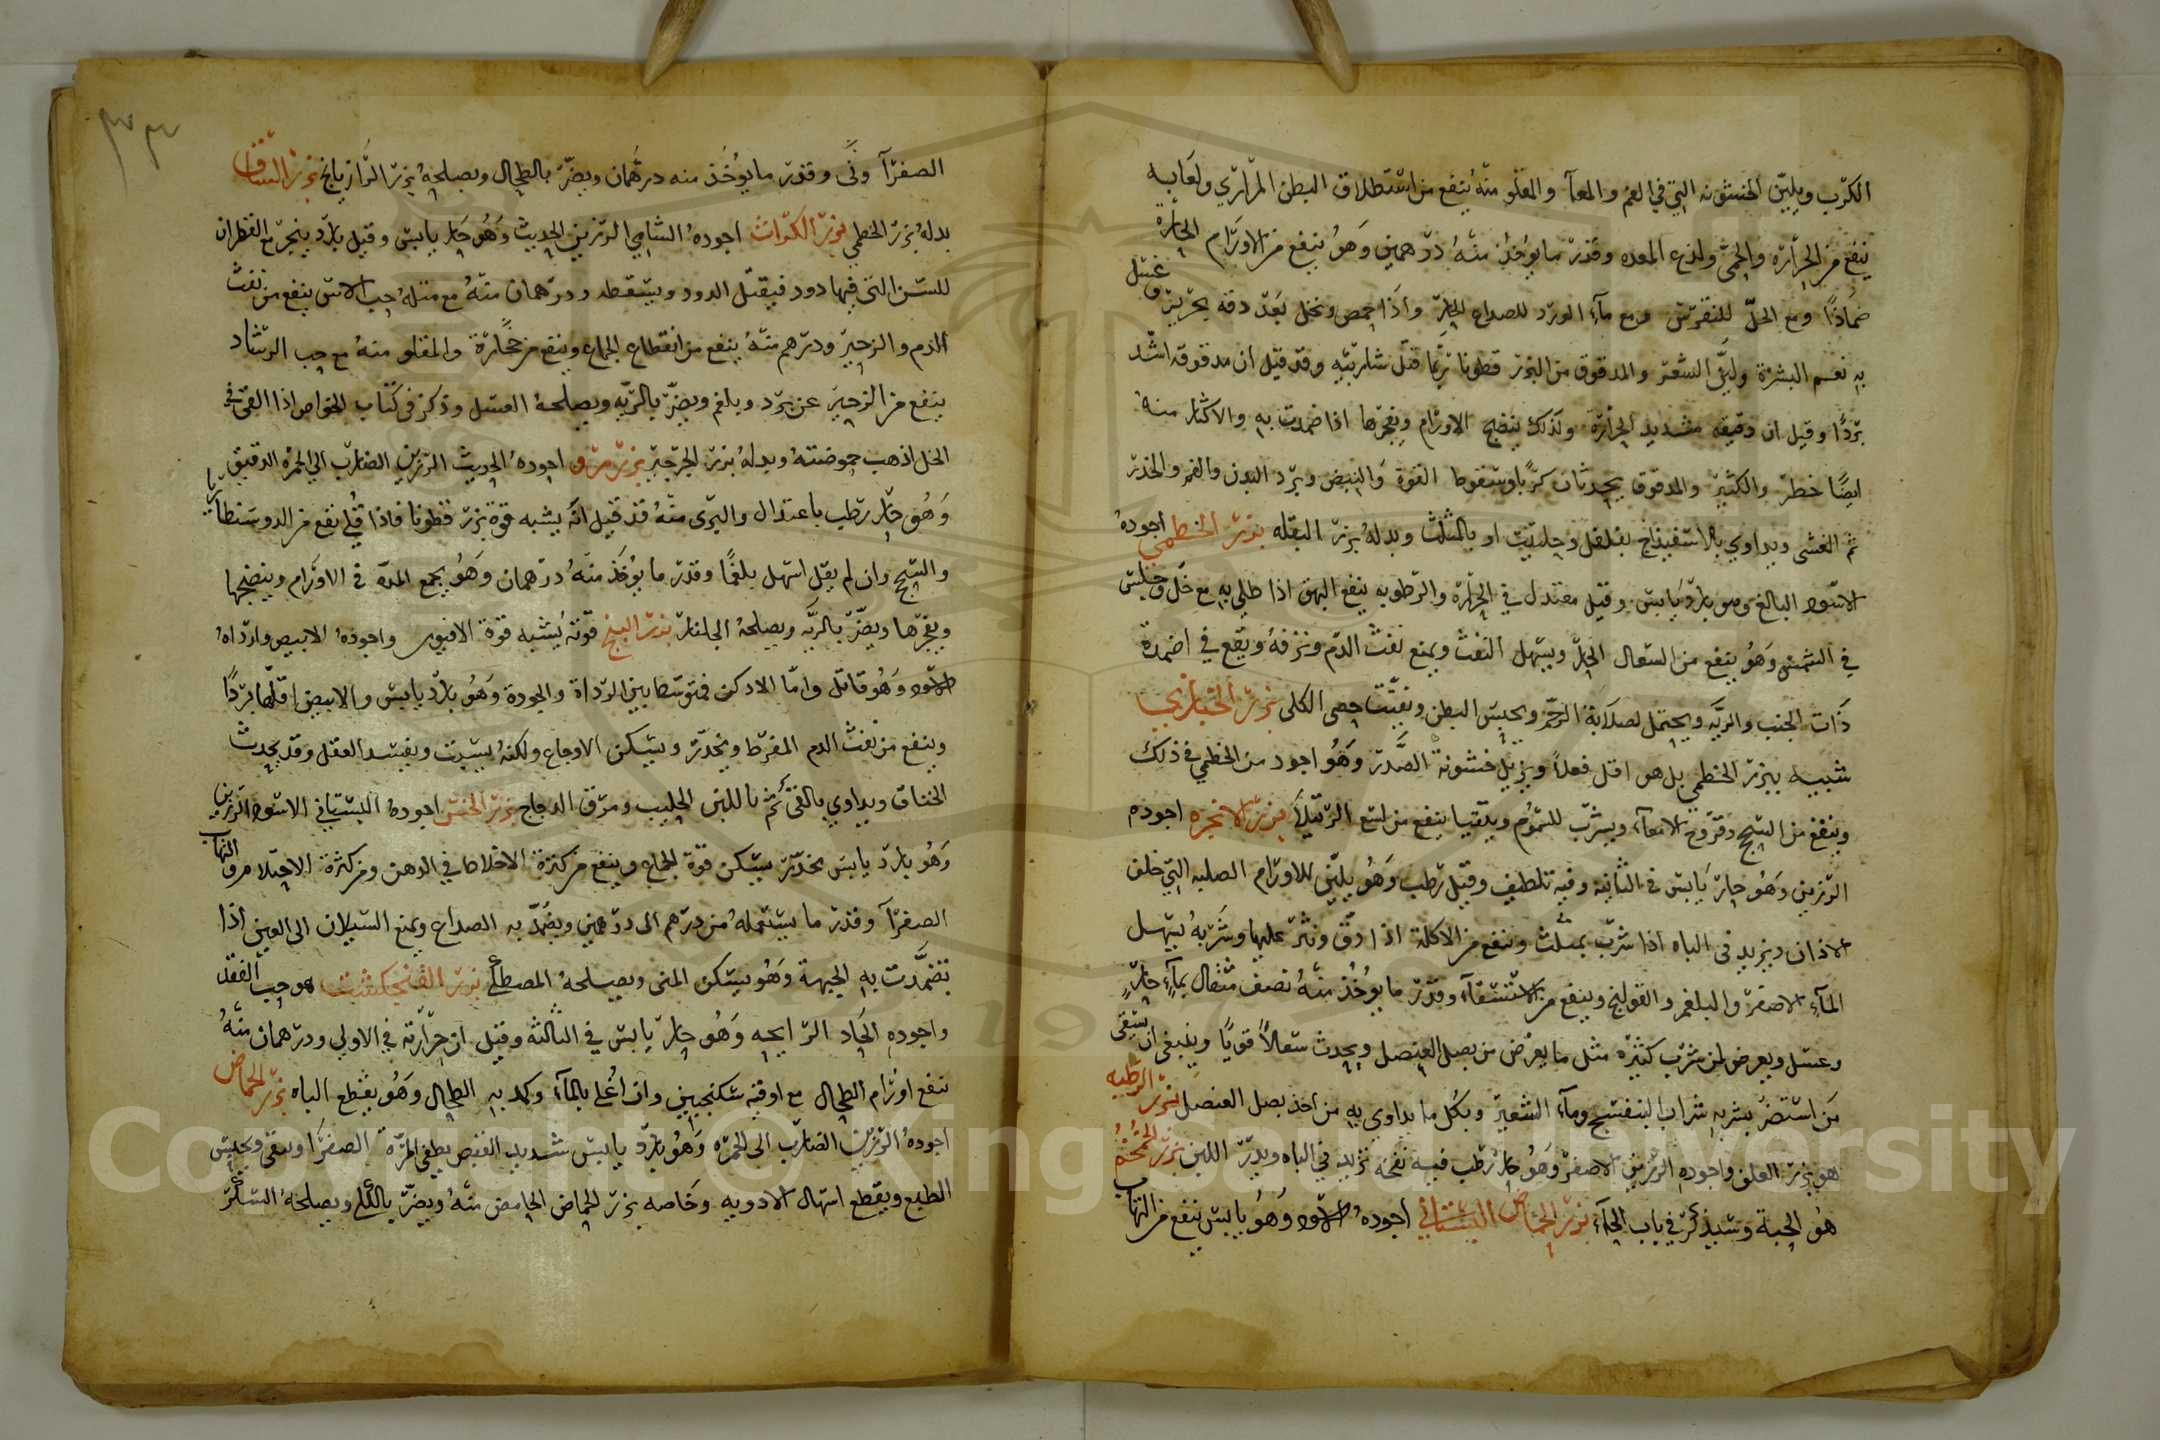 الكرب ويلين الخشونه التي في الفم والمعآ والمقلو منه ينفع من استطلاق البطن المراري ولعابه
ينفع من الحرارة والحمى ولذع المعده وقدر ما يوخذ منه درهمين وهو ينفع من الاورام الحاره
ضمادًا ومع الخل للنقرس ومع مآء الورد للصداع الحار واذا حمص ونخل بعد دقه بحرير وغسل
به نعم البشرة ولين الشعر والمدقوق من البزر قطونا ربما قتل شاربيه وقد قيل ان مدقوقه اشد
بردًا وقيل ان دقيقه شديد الحرارة ولذلك ينضج الاورام ويفجرها اذا ضمدت به والاكثار منه
ايضًا خطر والكثير والمدقوق يحدثان كربًا وسقوط القوة والنبض وبرد البدن والغم والخدر
ثم الغشى ويداوي بالاسفيذاج بفلفل وحلتيت او بالمثلث وبدله بزر البقله بزر الخطمي اجوده
الاسود البالغ وهو بارد يابس وقيل معتدل في الحرارة والرطوبه ينفع البهق اذا طلي به مع خل وجلس
في الشمس وهو ينفع من السعال الحار ويسهل النفث ويمنع نفث الدم ونزفه ويقع في اضمدة
ذات الجنب والريه ويحتمل لصلابة الرحم ويحبس البطن ويفتت حصى الكلى بزر الخبازى
شبيه ببزر الخطمي بل هو اقل فعلاً ويزيل خشونة الصدر وهو اجود من الخطمي في ذلك
وينفع من السحج وقروح الامعآء ويشرب للسموم ويتقيا ينفع من لسع الرتيلا بزر الانجره اجوده
الرزين وهو حار يابس في الثانية وفيه تلطيف وقيل رطب وهو يلين للاورام الصلبه التي خلف
الاذان ويزيد في الباه اذا شرب بمثلث وينفع من الاكلة اذا دق ونثر عليها وشربه يسهل
المآء الاصفر والبلغم والقولنج وينفع من الاستسقآء وقدر ما يوخذ منه نصف مثقال بمآء حار
وعسل ويعرض لمن شرب كثيره مثل ما يعرض من بصل العنصل ويحدث سعالاً قويًا وينبغي ان يسقى
من استضر بشربه شراب البنفسج ومآء الشعير وبكل ما يداوي به من اخذ بصل العنصل بزر الرطبه
هو بزر العلف واجوده الرزين الاصفر وهو حار رطب فيه نفخه تزيد في الباه ويدر اللبن بزر الخمخم
هو الحبة وسيذكر في باب الحآء بزر الحماض البستاني اجوده الاسود وهو يابس ينفع من التهاب
الصفرآ وقدر ما يوخذ منه درهمان ويضر بالطحال ويصلحه بزر الرازيانج بزر
بدله بزر الخطمي بزر الكراث اجوده الشامي الرزين الحديث وهو حار يابس وقيل بارد يبخر مع القطران
للسن التى فيها دود فيقتل الدود ويسقطه ودرهمان منه مع مثله حب الاس ينفع من نفث
الدم والزحير ودرهم منه ينفع من انقطاع الجماع وينفع من والمقلو منه مع حب الرشاد
ينفع من الزحير عن برد وبلغم ويضر بالريه ويصلحه العسل وذكر في كتاب الخواص اذا القى في
الخل اذهب حموضته وبدله بزر الجرجير بزر مرو اجوده الحديث الرزين الضارب الي الحمرة الدقيق
وهو حار رطب باعتدال والبرى منه قد قيل انه يشبه قوة بزر قطونا فاذا قلي نفع من الدوسنطاريا
والسحج وان لم يقل اسهل بلغمًا وقدر ما يوخذ منه درهمان وهو يجمع المدة في الاورام وينضجها
ويفجرها ويضر بالريه ويصلحه الجلنار بزر البنج قوته يشبه قوة الافيون واجوده الابيض وارداه
الاسود وهو قاتل واما الادكن فمتوسط بين الرداة والجودة وهو بارد يابس والابيض اقلها بردًا
وينفع من نفث الدم المفرط ويخدر ويسكن الاوجاع ولكنه يسبت ويفسد العقل وقد يحدث
الخناق ويداوي بالقئ ثم باللبن الحليب ومرق الدجاج بزر الخس اجوده البستاني الاسود الرزين
وهو بارد يابس مخدر يسكن قوة الجماع وينفع من كثرة الاخلاط في الذهن ومن كثرة الاحتلام والتهاب
الصفرآ وقدر ما يستعمله من درهم الى درهمين ويضمد به الصداع ويمنع السيلان الى العين اذا
تضمدت به الجبهة وهو يسكن المنى ويصلحه المصطكى بزر الفنجنكشت هو حب الفقد
واجوده الحاد الرايحه وهو حار يابس في الثالثه وقيل ان حرارته في الاولى ودرهمان منه
تنفع اورام الطحال مع اوقيه سكنجبين وان اغلي بالمآء وكمد به الطحال وهو يقطع الباه بزر الحماض
اجوده الرزين الضارب الى الحمره وهو بارد يابس شديد القبض يطفي المرة الصفرا وينقى ويحبس
الطبع ويقطع اسهال الادويه وخاصه بزر الحماض الحامض منه ويضر بالكلى ويصلحه السكر
Copyright © King Saud University
1957